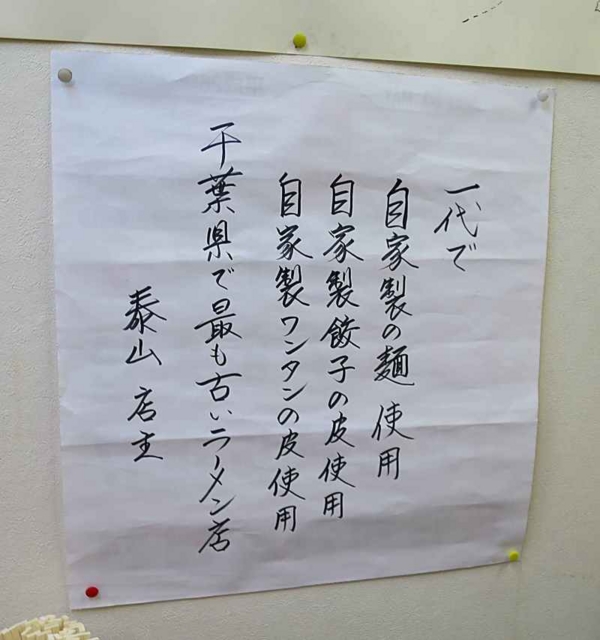 一代で
自家製の麺 使用
自家製餃子の皮使用
自家製ワンタンの皮使用
千葉県で最も古いラーメン店
泰山 店主